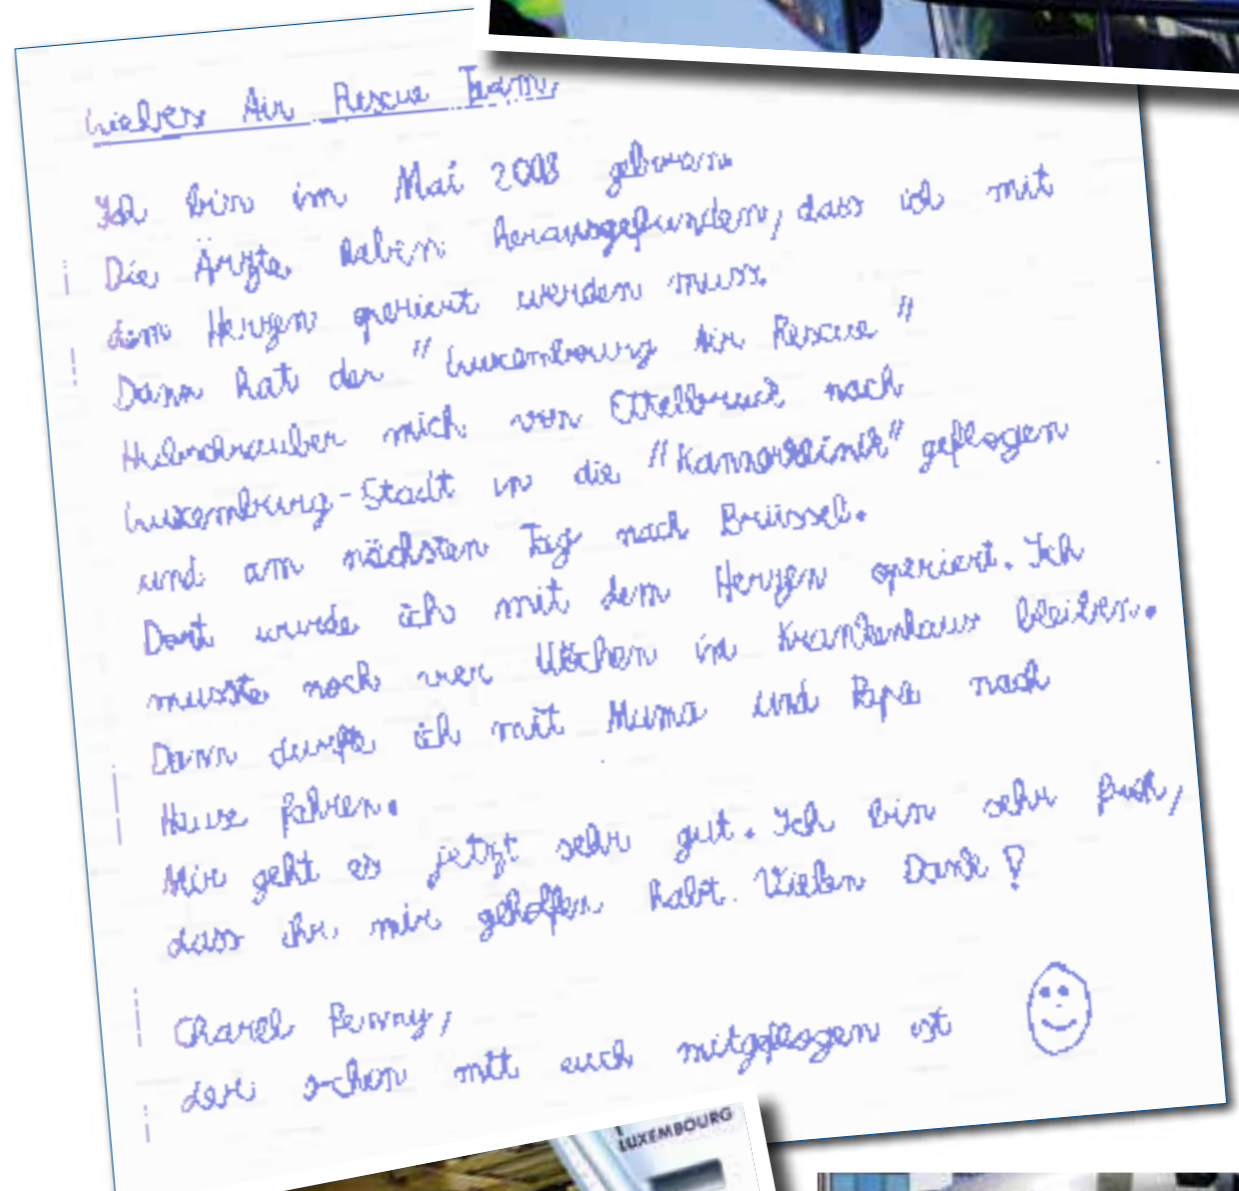 Liebes Air Rescue Team,
Ich bin im Mai 2008 geboren.
Die Ärzte haben herausgefunden, dass ich mit
dem Herzen operiert werden muss.
Dann hat der "Luxembourg Air Rescue"
Hubschrauber mich von Ettelbruck nach
Luxemburg-Stadt in die "Kannerklinik" geflogen
und am nächsten Tag nach Brüssel.
Dort wurde ich mit dem Herzen operiert. Ich
musste noch vier Wochen im Krankenhaus bleiben.
Dann durfte ich mit Mama und Papa nach
Hause fahren.
Mir geht es jetzt sehr gut. Ich bin sehr froh,
dass ihr mir geholfen habt. Vielen Dank!
Charel Penny,
der schon mit euch mitgeflogen ist
LUXEMBOURG